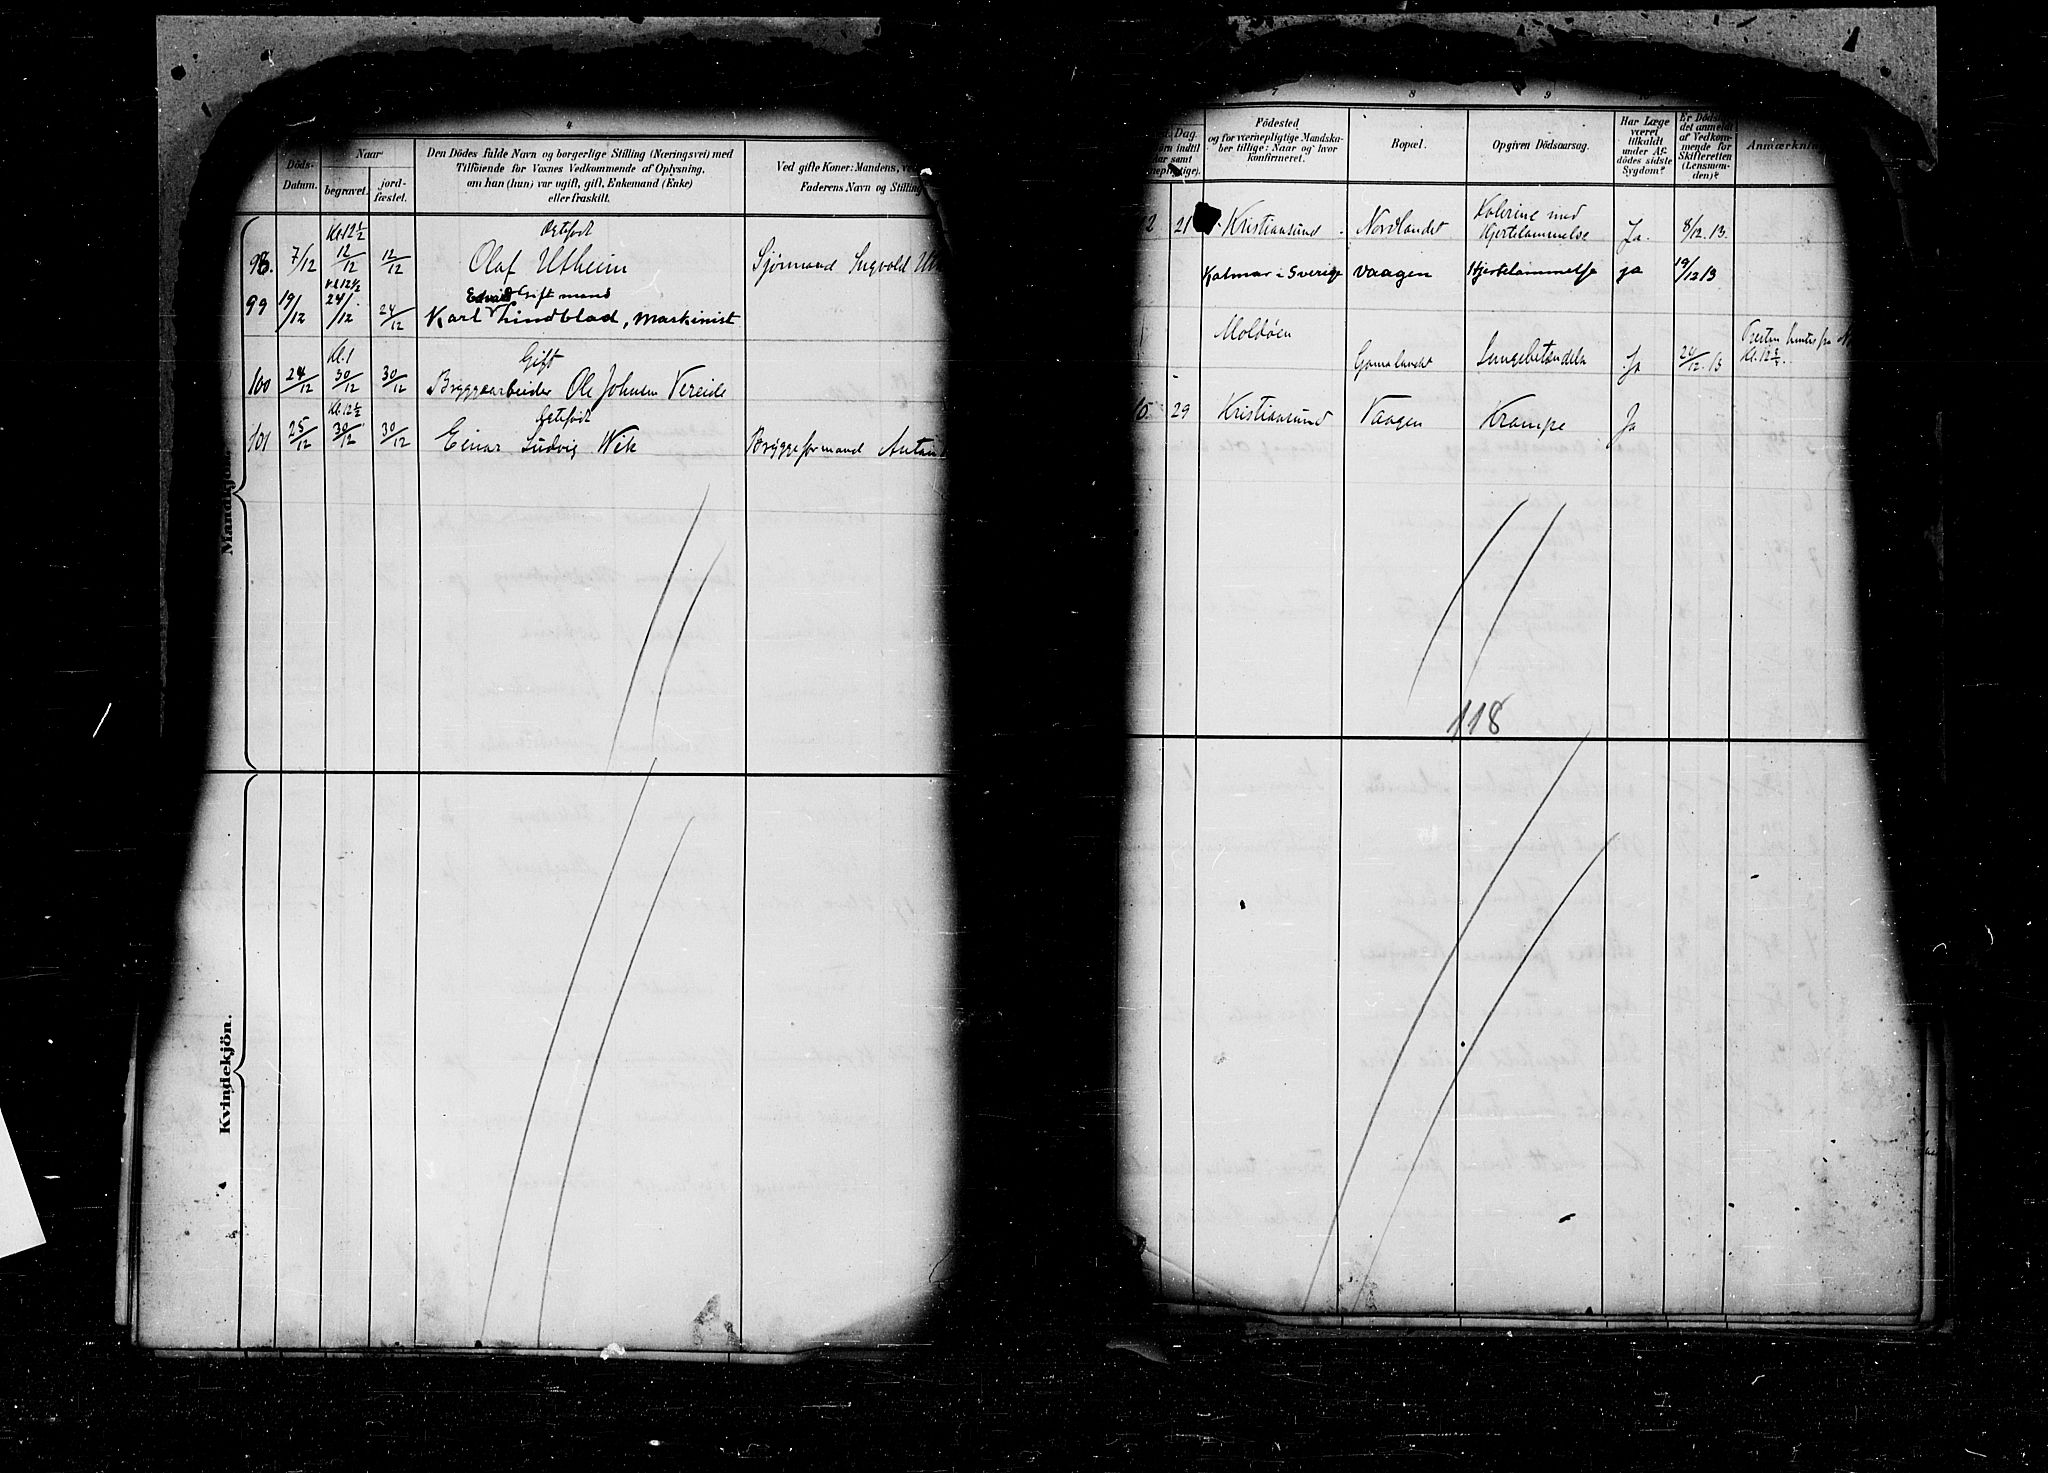 4
Döds-
Datum.
Naar
begravet.
jord-
fæstet.
Den Dödes fulde Navn og borgerlige Stilling (Næringsvei) med
Tilföiende for Voxnes Vedkommende af Oplysning,
om han (hun) var ugift, gift, Enkemand (Enke)
eller fraskilt.
Ved gifte Koner: Mandens, ve
Faderens Navn og Stilling
Kl. 12 1/2
Ægtefødt
98. 7/12 12/12 12/12 Olaf Utheim Sjømand Ingvold
Kl 12 1/2
Edvard Gift mand
99 19/12 24/12 24/12 Karl Lindblad, Maskinist
Kl. 1
Gift
100 24/12 30/12 30/12 Bryggearbeider Ole Johnsen Vereide
Kl. 12 1/2
Ægtefødt
101 25/12 30/12 30/12 Einar Ludvig Wik Bryggeformand Anton
Mandkjön.
Kvindekjön.
7 8 9
Dag.
Födested
og for værnepligtige Mandska-
ber tillige: Naar og hvor
konfirmeret.
Bopæl.
Opgiven Dödsaarsag.
Har Læge
været
tilkaldt
under Af-
dödes sidste
Sygdom?
Er Dödsfal-
det anmeldt
af Vedkom-
mende for
Skifteretten
(Lensman-
den)?
Anmærkning
2 21 Kristiansund Nordlandet Kolerine med
Hjertelammelse Ja. 8/12 13.
Kalmar i Sverige Vaagen Hjertelammelse ja 19/12 13
Moldøen
Gomalandet Lungebetændelse Ja 24/12 13
Kl. 12 1/2
29 Kristiansund Vaagen Krampe Ja
118